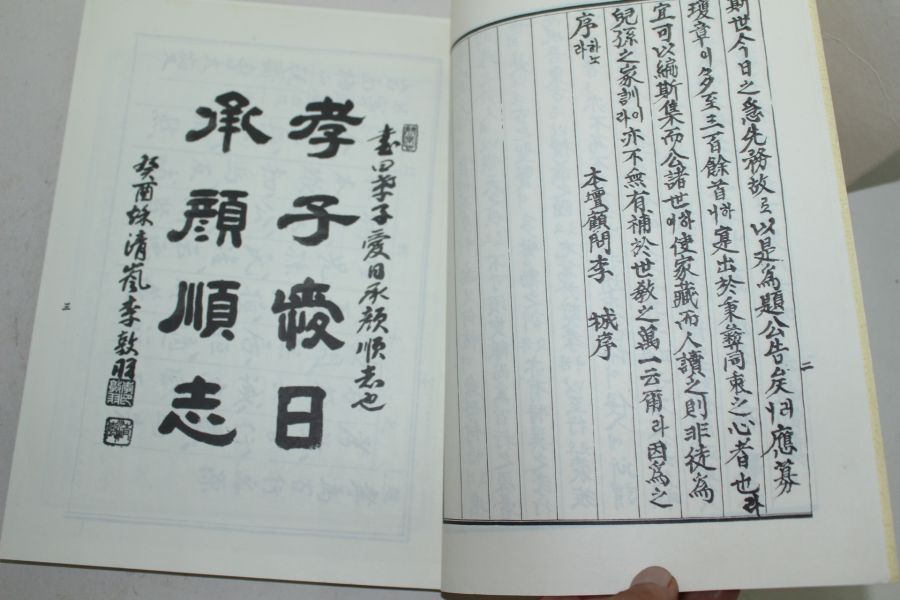 斯世今日之急先務故로以是爲題公告矣러니應募
瓊章이多至三百餘首하니寔出於秉彛同衷之心者也라
宜可以編斯集而公諸世하야使家藏而人讀之則非徒爲
兒孫之家訓이라亦不無有補於世敎之萬一云爾라因爲之
序하노라
本壇顧問李 城序
二
書田孝子愛日承顔順志也
孝子愛日
承顔順志
癸酉 清嵐李敦
三